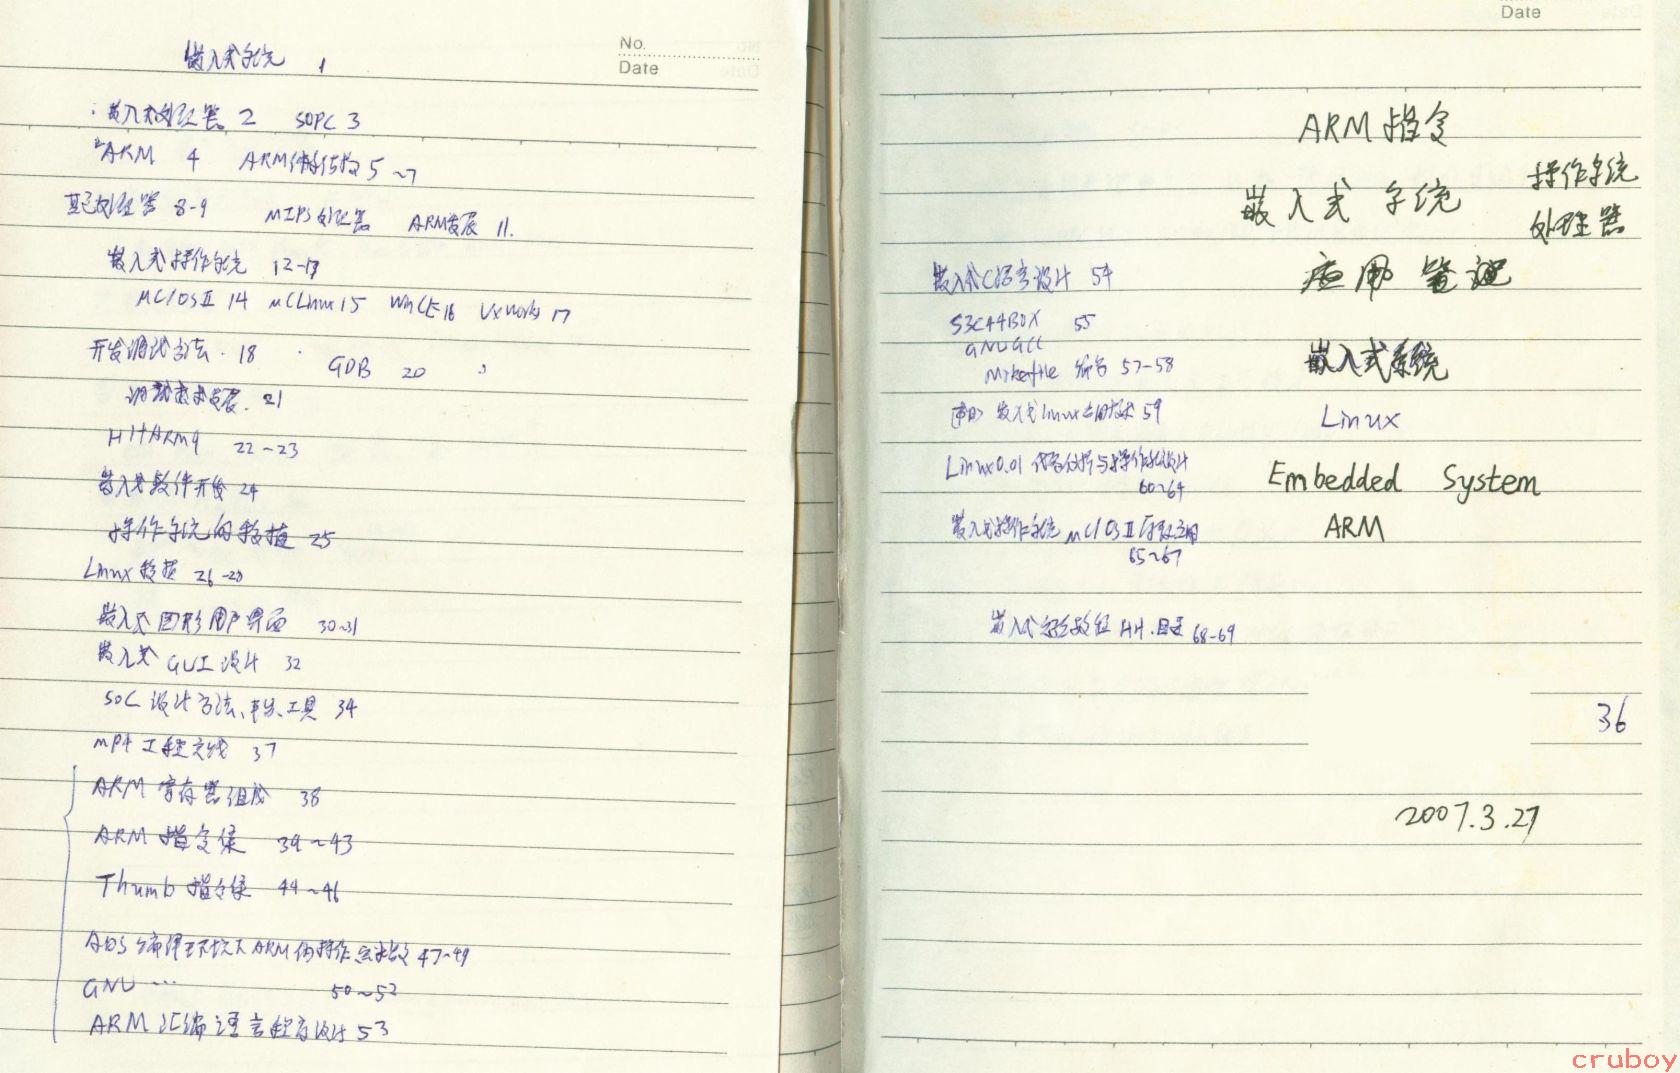 No.
Date
嵌入式系统 1
嵌入式处理器 2 SOPC 3
ARM 4 ARM体系结构 5~7
其它处理器 8-9 MIPS处理器 ARM发展 11.
嵌入式操作系统 12-17
MC/OSⅡ 14 MCLinux 15 WinCE 16 Vxworks 17
开发调试方法 18 GDB 20
调试技术发展. 21
HITARM9 22~23
嵌入式软件开发 24
操作系统的移植 25
Linux移植
嵌入式图形用户界面 30~31
嵌入式 GUI设计 32
SOC 设计方法、平台、工具 34
MP4 工程实践 37
ARM 寄存器组成 38
ARM 指令集 39~43
Thumb 指令集 44~46
ADS编译环境下ARM伪操作 47~49
GNU … 50~52
ARM汇编语言程序设计 53
Date
ARM 指令
操作系统
嵌入式 系统
处理器
应用 笔记
嵌入式C语言设计 54
S3C44B0X 55
GNU GCC
Makefile 57-58
嵌入式系统
嵌入式linux应用技术 59
Linux
Linux0.01 代码分析与操作系统设计
60~64
Embedded System
嵌入式操作系统 MC/OSⅡ 应用
65~67
ARM
嵌入式 教程 目录 68-69
36
2007.3.27
cruboy